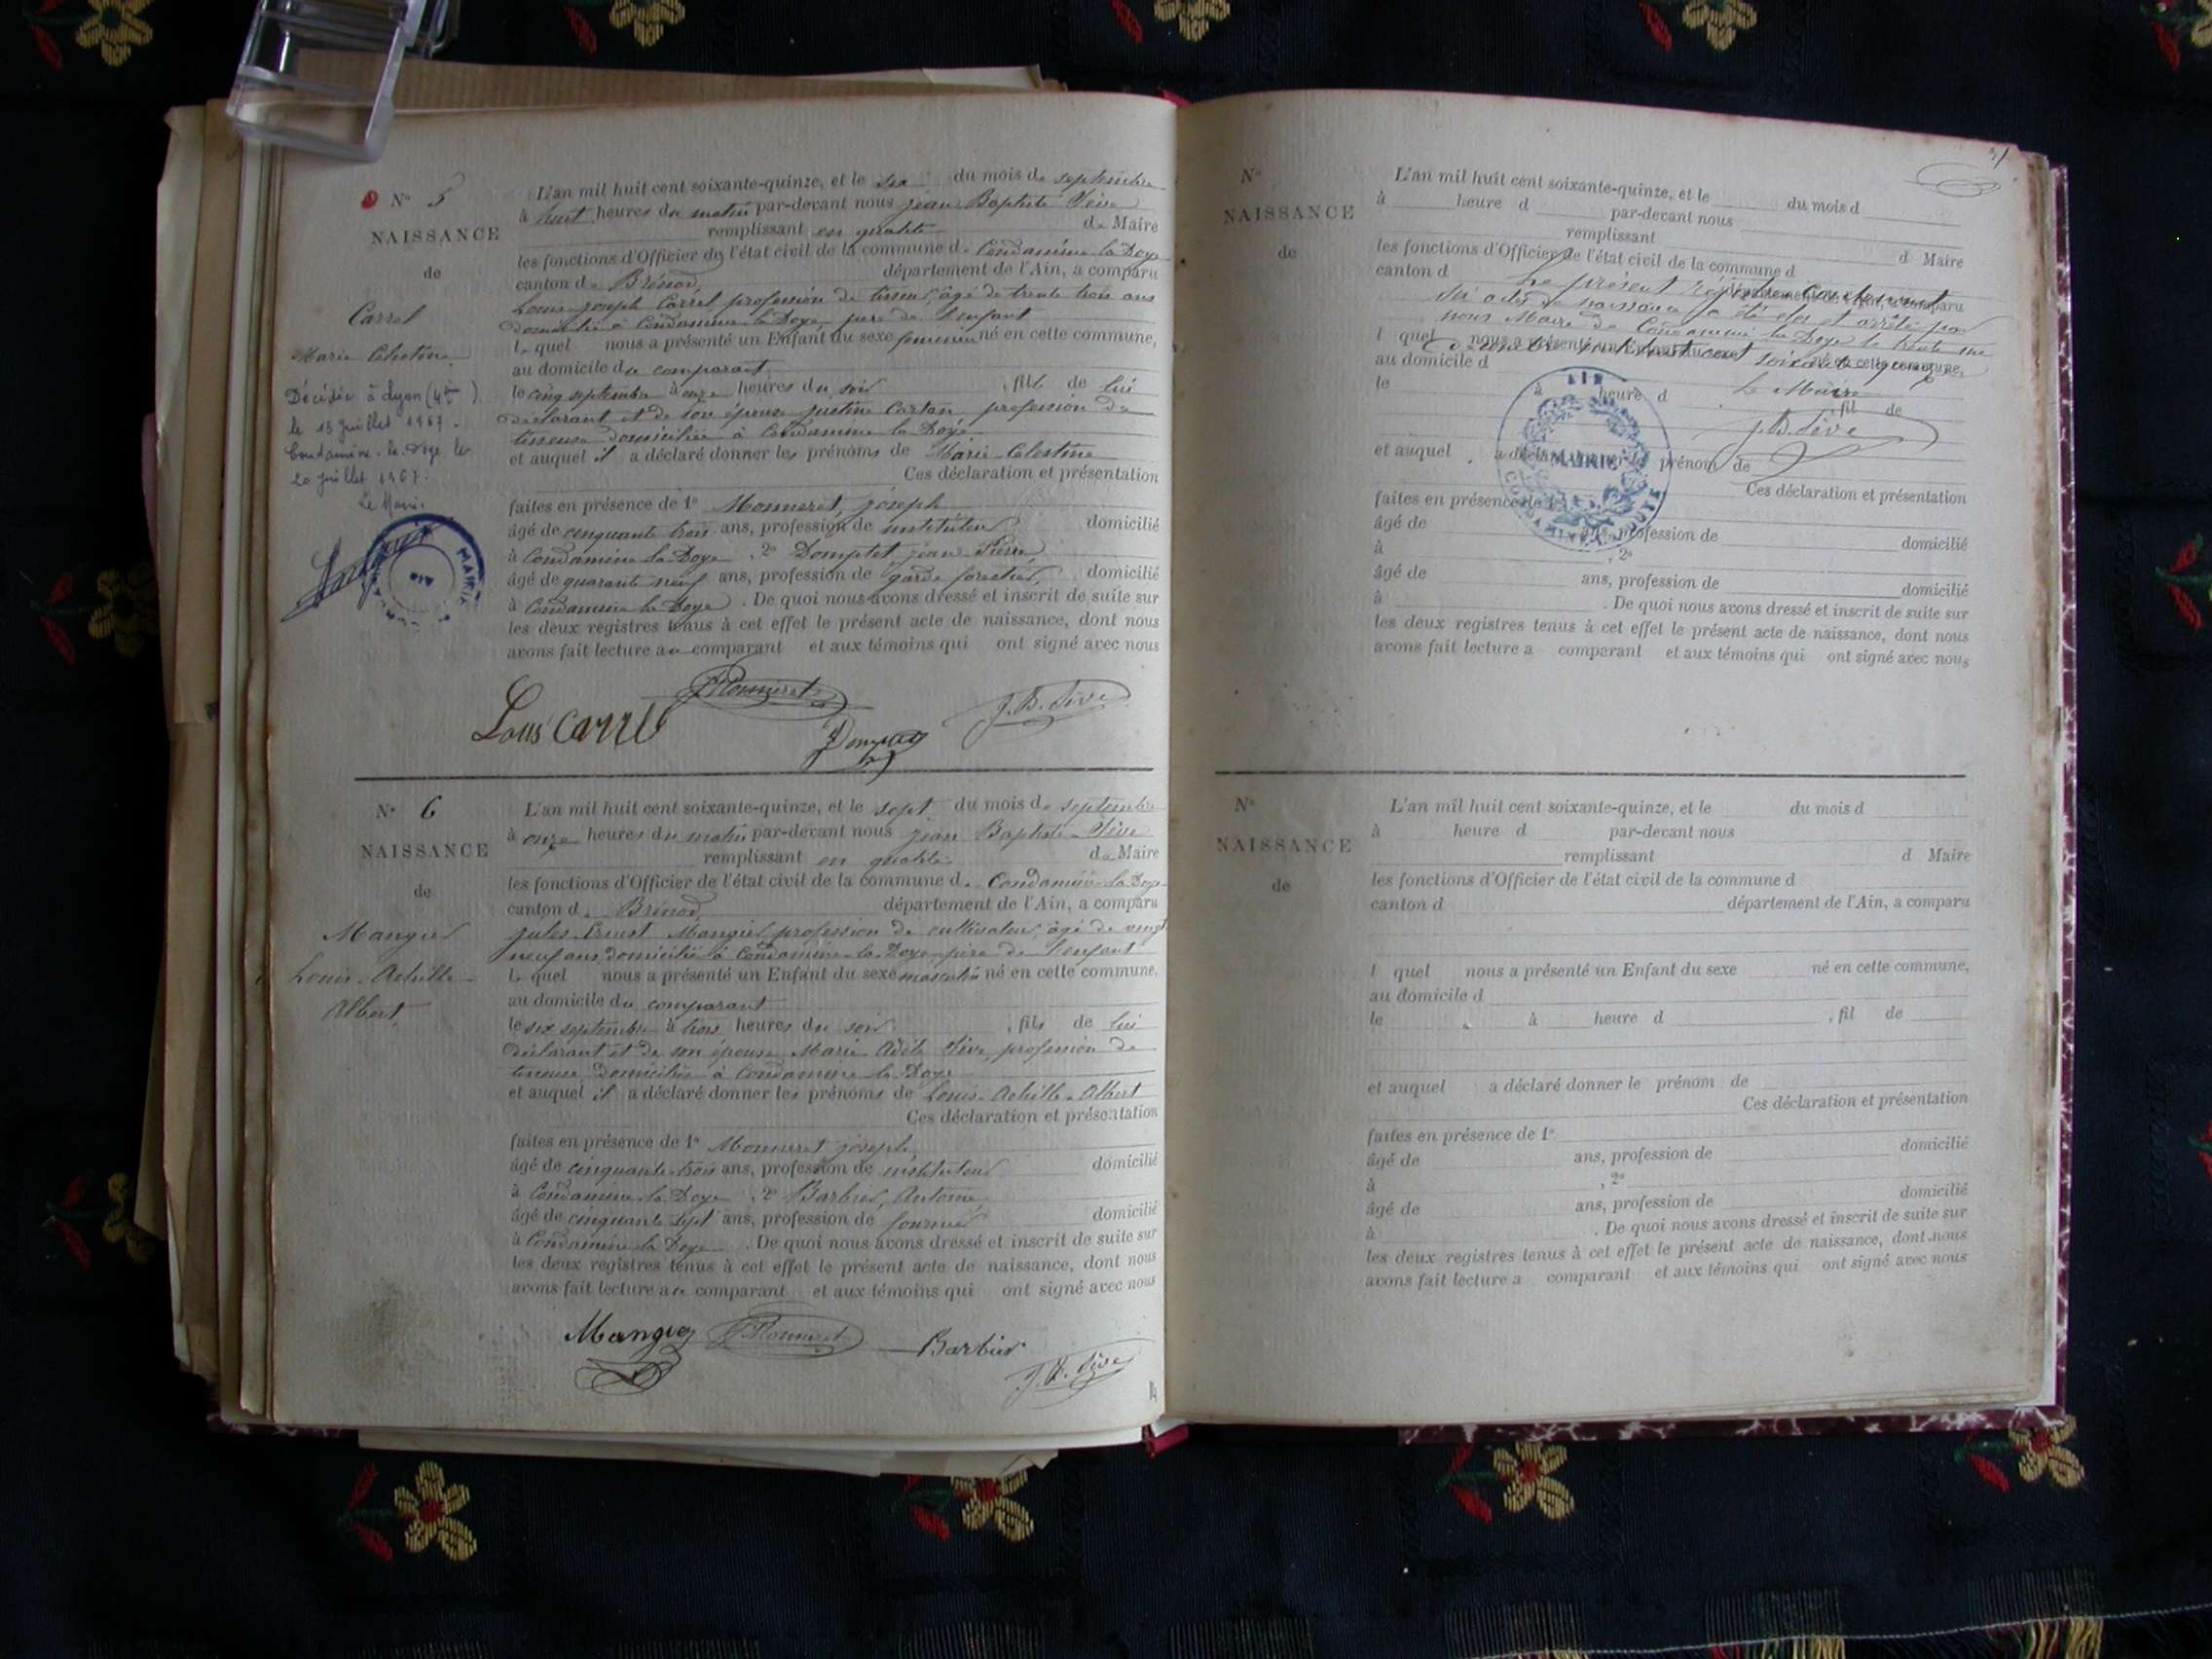 N° 5
NAISSANCE
de
Carrel
Marie Celestine
Décédée à Lyon (4ème)
le 18 juillet 1967.
Condamine-la-Doye le
20 juillet 1967.
Le Maire
MAIRIE
AIN
L'an mil huit cent soixante-quinze, et le six du mois de septembre
à huit heures du matin par-devant nous jean Baptiste Sève
remplissant en qualité de Maire
les fonctions d'Officier de l'état civil de la commune de Condamine la Doye
canton de Brénod, département de l'Ain, a comparu
Louis joseph Carrel, profession de tisseur, âgé de trente trois ans
domicilié à Condamine la Doye, père de l'enfant
Lequel nous a présenté un Enfant du sexe feminin né en cette commune,
au domicile du comparant
le cinq septembre à onze heures du soir, fille de lui
déclarant et de son épouse justine Cartan profession de
tisseuse domiciliée à Condamine la Doye
et auquel il a déclaré donner les prénoms de Marie Celestine
Ces déclaration et présentation
faites en présence de 1° Monneret, joseph
âgé de cinquante trois ans, profession de instituteur domicilié
à Condamine la Doye, 2° Domptet jean Pierre
âgé de quarante neuf ans, profession de garde forestier, domicilié
à Condamine la Doye. De quoi nous avons dressé et inscrit de suite sur
les deux registres tenus à cet effet le présent acte de naissance, dont nous
avons fait lecture au comparant et aux témoins qui ont signé avec nous
Monneret
Louis Carrel
J. B. Sève
Domptet
N° 6
NAISSANCE
de
Mangier
Louis-Achille-
Albert,
L'an mil huit cent soixante-quinze, et le sept du mois de septembre
à onze heures du matin par-devant nous jean Baptiste Sève
remplissant en qualité de Maire
les fonctions d'Officier de l'état civil de la commune de Condamine la Doye
canton de Brénod, département de l'Ain, a comparu
jules Ernest Mangier profession de cultivateur, âgé de vingt
neuf ans, domicilié à Condamine la Doye père de l'enfant
Lequel nous a présenté un Enfant du sexe masculin né en cette commune,
au domicile du comparant
le six septembre à trois heures du soir, fils de lui
déclarant et de son épouse Marie Adèle Sève, profession de
tisseuse domiciliée à Condamine la Doye
et auquel il a déclaré donner les prénoms de Louis-Achille-Albert
Ces déclaration et présentation
faites en présence de 1° Monneret joseph
âgé de cinquante-trois ans, profession de instituteur domicilié
à Condamine la Doye, 2° Barbier, Antoine
âgé de cinquante sept ans, profession de fournier domicilié
à Condamine la Doye. De quoi nous avons dressé et inscrit de suite sur
les deux registres tenus à cet effet le présent acte de naissance, dont nous
avons fait lecture au comparant et aux témoins qui ont signé avec nous
Mangier Monneret Barbier
J. B. Sève
N°
NAISSANCE
de
L'an mil huit cent soixante-quinze, et le du mois d
à heure d par-devant nous
remplissant d Maire
les fonctions d'Officier de l'état civil de la commune d
canton d département de l'Ain, a comparu
Le présent registre contenant
six actes de naissance a été clos et arrêté par
nous Maire de Condamine la Doye le trente un
décembre mil huit cent soixante quinze
l quel nous a présenté un Enfant du sexe né en cette commune,
au domicile d
le à heure d , fil de
Le Maire
J. B. Sève
MAIRIE
CONDAMINE LA DOYE
AIN
et auquel a déclaré donner le prénom de
Ces déclaration et présentation
faites en présence de 1°
âgé de ans, profession de domicilié
à , 2°
âgé de ans, profession de domicilié
à . De quoi nous avons dressé et inscrit de suite sur
les deux registres tenus à cet effet le présent acte de naissance, dont nous
avons fait lecture a comparant et aux témoins qui ont signé avec nous
N°
NAISSANCE
de
L'an mil huit cent soixante-quinze, et le du mois d
à heure d par-devant nous
remplissant d Maire
les fonctions d'Officier de l'état civil de la commune d
canton d département de l'Ain, a comparu
l quel nous a présenté un Enfant du sexe né en cette commune,
au domicile d
le à heure d , fil de
et auquel a déclaré donner le prénom de
Ces déclaration et présentation
faites en présence de 1°
âgé de ans, profession de domicilié
à , 2°
âgé de ans, profession de domicilié
à . De quoi nous avons dressé et inscrit de suite sur
les deux registres tenus à cet effet le présent acte de naissance, dont nous
avons fait lecture a comparant et aux témoins qui ont signé avec nous